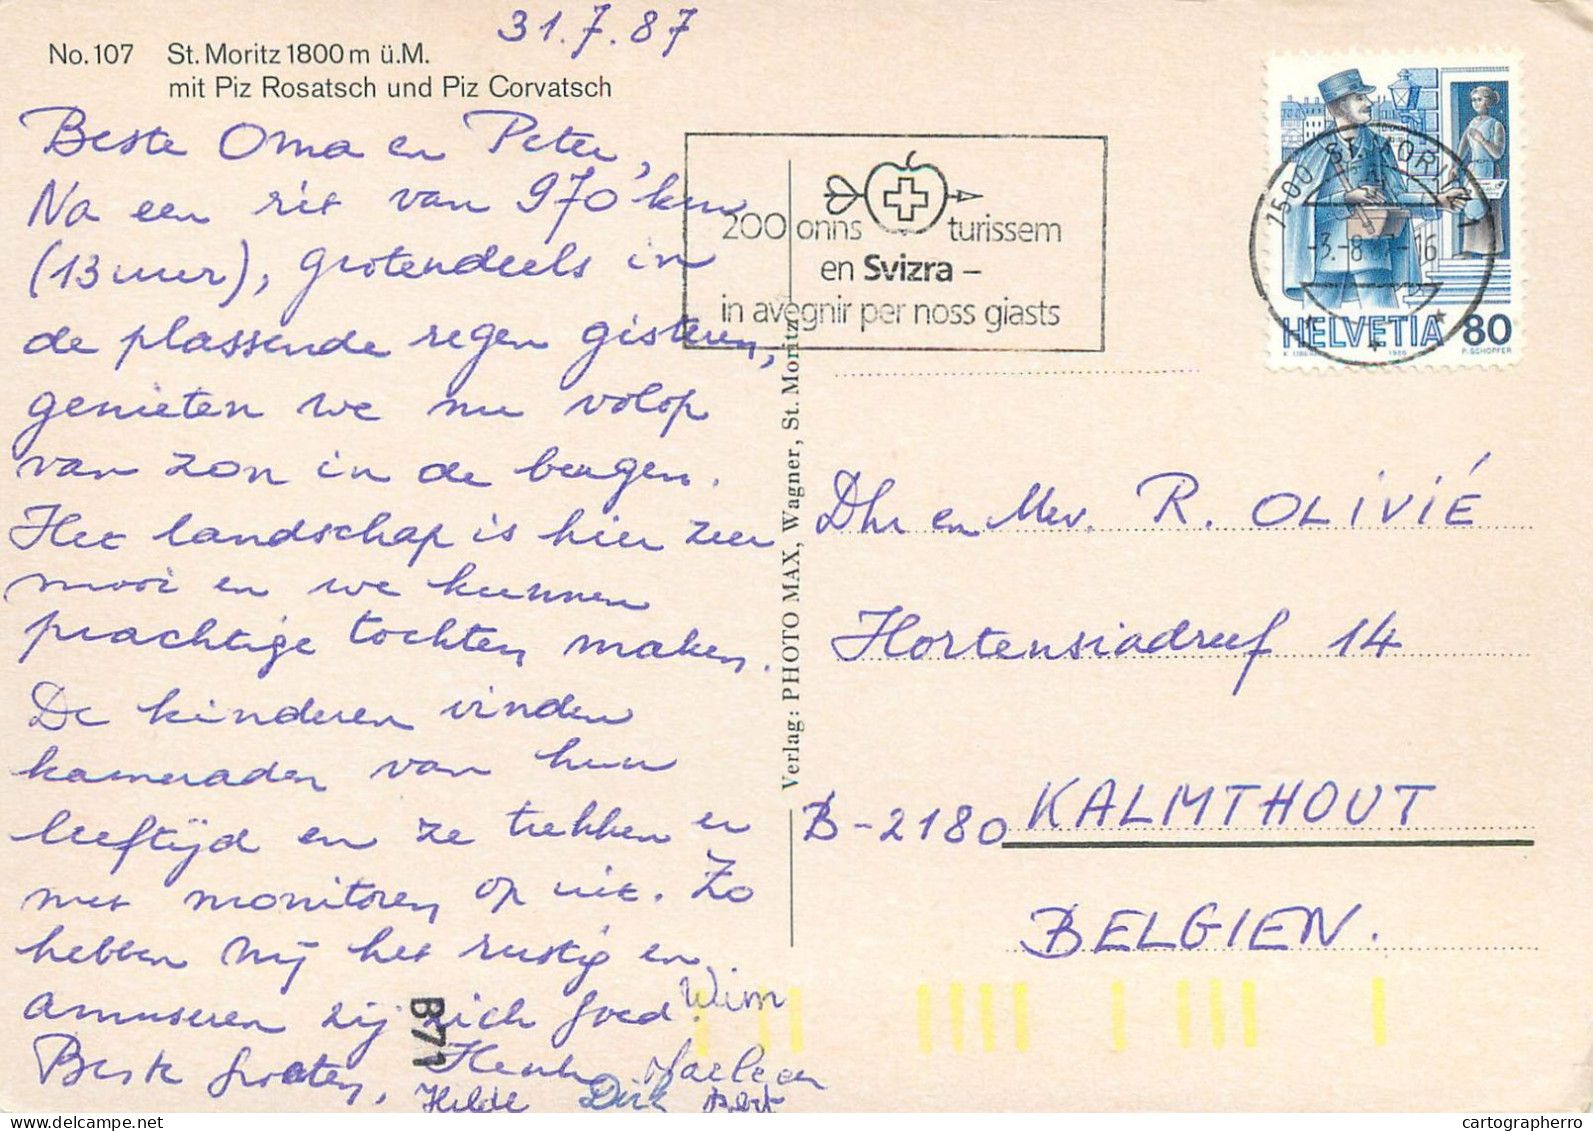 31.7.87
No. 107 St. Moritz 1800 m ü. M.
mit Piz Rosatsch und Piz Corvatsch
Beste Oma en Peter,
Na een rit van 970 km
(13 uur), grotendeels in
de plassende regen gisteren,
genieten we nu volop
van zon in de bergen.
Het landschap is hier zeer
mooi en we kunnen
prachtige tochten maken.
De kinderen vinden
kameraden van hun
leeftijd en ze trekken er
met monitoren op uit. Zo
hebben wij het rustig en
amuseren zij zich goed.
Beste groeten,
Wim
Henk Marleen
Hilde Dirk
B71
Verlag: PHOTO MAX, Wagner, St. Moritz
200 onns turissem
en Svizra –
in avegnir per noss giasts
7500 ST. MORITZ 1
-3.-8.87-16
HELVETIA 80
P. SCHOPFER
1986
Dhr en Mev. R. OLIVIÉ
Hortensiadreef 14
B-2180 KALMTHOUT
BELGIEN.
cartographerro